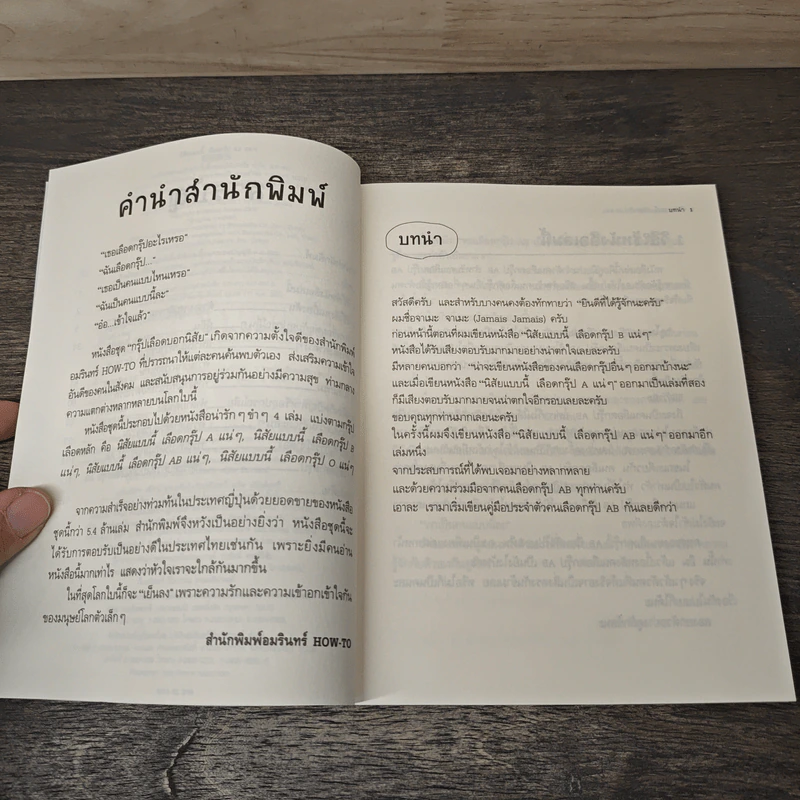 คำนำสำนักพิมพ์
“เธอเลือดกรุ๊ปอะไรเหรอ”
“ฉันเลือดกรุ๊ป...”
“เธอเป็นคนแบบไหนเหรอ”
“ฉันเป็นคนแบบนี้ละ”
“อ๋อ...เข้าใจแล้ว”
หนังสือชุด “กรุ๊ปเลือดบอกนิสัย” เกิดจากความตั้งใจดีของสำนักพิมพ์
อมรินทร์ HOW-TO ที่ปรารถนาให้แต่ละคนค้นพบตัวเอง ส่งเสริมความเข้าใจ
อันดีของคนในสังคม และสนับสนุนการอยู่ร่วมกันอย่างมีความสุข ท่ามกลาง
ความแตกต่างหลากหลายบนโลกใบนี้
หนังสือชุดนี้ประกอบไปด้วยหนังสือน่ารักๆ ขำๆ 4 เล่ม แบ่งตามกรุ๊ป
เลือดหลัก คือ นิสัยแบบนี้ เลือดกรุ๊ป A แน่ๆ, นิสัยแบบนี้ เลือดกรุ๊ป B
แน่ๆ, นิสัยแบบนี้ เลือดกรุ๊ป AB แน่ๆ, นิสัยแบบนี้ เลือดกรุ๊ป O แน่ๆ
จากความสำเร็จอย่างท่วมท้นในประเทศญี่ปุ่นด้วยยอดขายของหนังสือ
ชุดนี้กว่า 5.4 ล้านเล่ม สำนักพิมพ์จึงหวังเป็นอย่างยิ่งว่า หนังสือชุดนี้จะ
ได้รับการตอบรับเป็นอย่างดีในประเทศไทยเช่นกัน เพราะยิ่งมีคนอ่าน
หนังสือนี้มากเท่าไร แสดงว่าหัวใจเราจะใกล้กันมากขึ้น
ในที่สุดโลกใบนี้ก็จะ “เย็นลง” เพราะความรักและความเข้าอกเข้าใจกัน
ของมนุษย์โลกตัวเล็กๆ
สำนักพิมพ์อมรินทร์ HOW-TO
บทนำ
บทนำ
สวัสดีครับ และสำหรับบางคนคงต้องทักทายว่า “ยินดีที่ได้รู้จักนะครับ”
ผมชื่อจาเมะ จาเมะ (Jamais Jamais) ครับ
ก่อนหน้านี้ตอนที่ผมเขียนหนังสือ “นิสัยแบบนี้ เลือดกรุ๊ป B แน่ๆ”
หนังสือได้รับเสียงตอบรับมากมายอย่างน่าตกใจเลยละครับ
มีหลายคนบอกว่า “น่าจะเขียนหนังสือของคนเลือดกรุ๊ปอื่นๆ ออกมาบ้างนะ”
และเมื่อเขียนหนังสือ “นิสัยแบบนี้ เลือดกรุ๊ป A แน่ๆ” ออกมาเป็นเล่มที่สอง
ก็มีเสียงตอบรับมากมายจนน่าตกใจอีกรอบเลยละครับ
ขอบคุณทุกท่านมากเลยนะครับ
ในครั้งนี้ผมจึงเขียนหนังสือ “นิสัยแบบนี้ เลือดกรุ๊ป AB แน่ๆ” ออกมาอีก
เล่มหนึ่ง
จากประสบการณ์ที่ได้พบเจอมาอย่างหลากหลาย
และด้วยความร่วมมือจากคนเลือดกรุ๊ป AB ทุกท่านครับ
เอาละ เรามาเริ่มเขียนคู่มือประจำตัวคนเลือดกรุ๊ป AB กันเลยดีกว่า